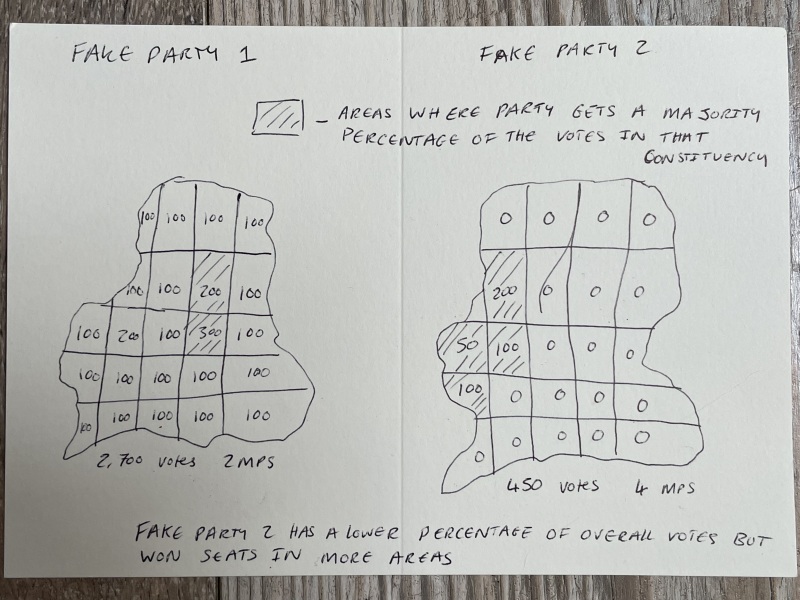 FAKE PARTY 1
FAKE PARTY 2
- AREAS WHERE PARTY GETS A MAJORITY
PERCENTAGE OF THE VOTES IN THAT
CONSTITUENCY
100 100 100 100
100 100 200 100
100 200 100 300 100
100 100 100 100 100
100 100 100 100 100
2,700 votes 2 MPS
0 0 0 0
200 0 0 0
50 100 0 0 0
100 0 0 0 0
0 0 0 0 0
450 votes 4 MPS
FAKE PARTY 2 HAS A LOWER PERCENTAGE OF OVERALL VOTES BUT
WON SEATS IN MORE AREAS